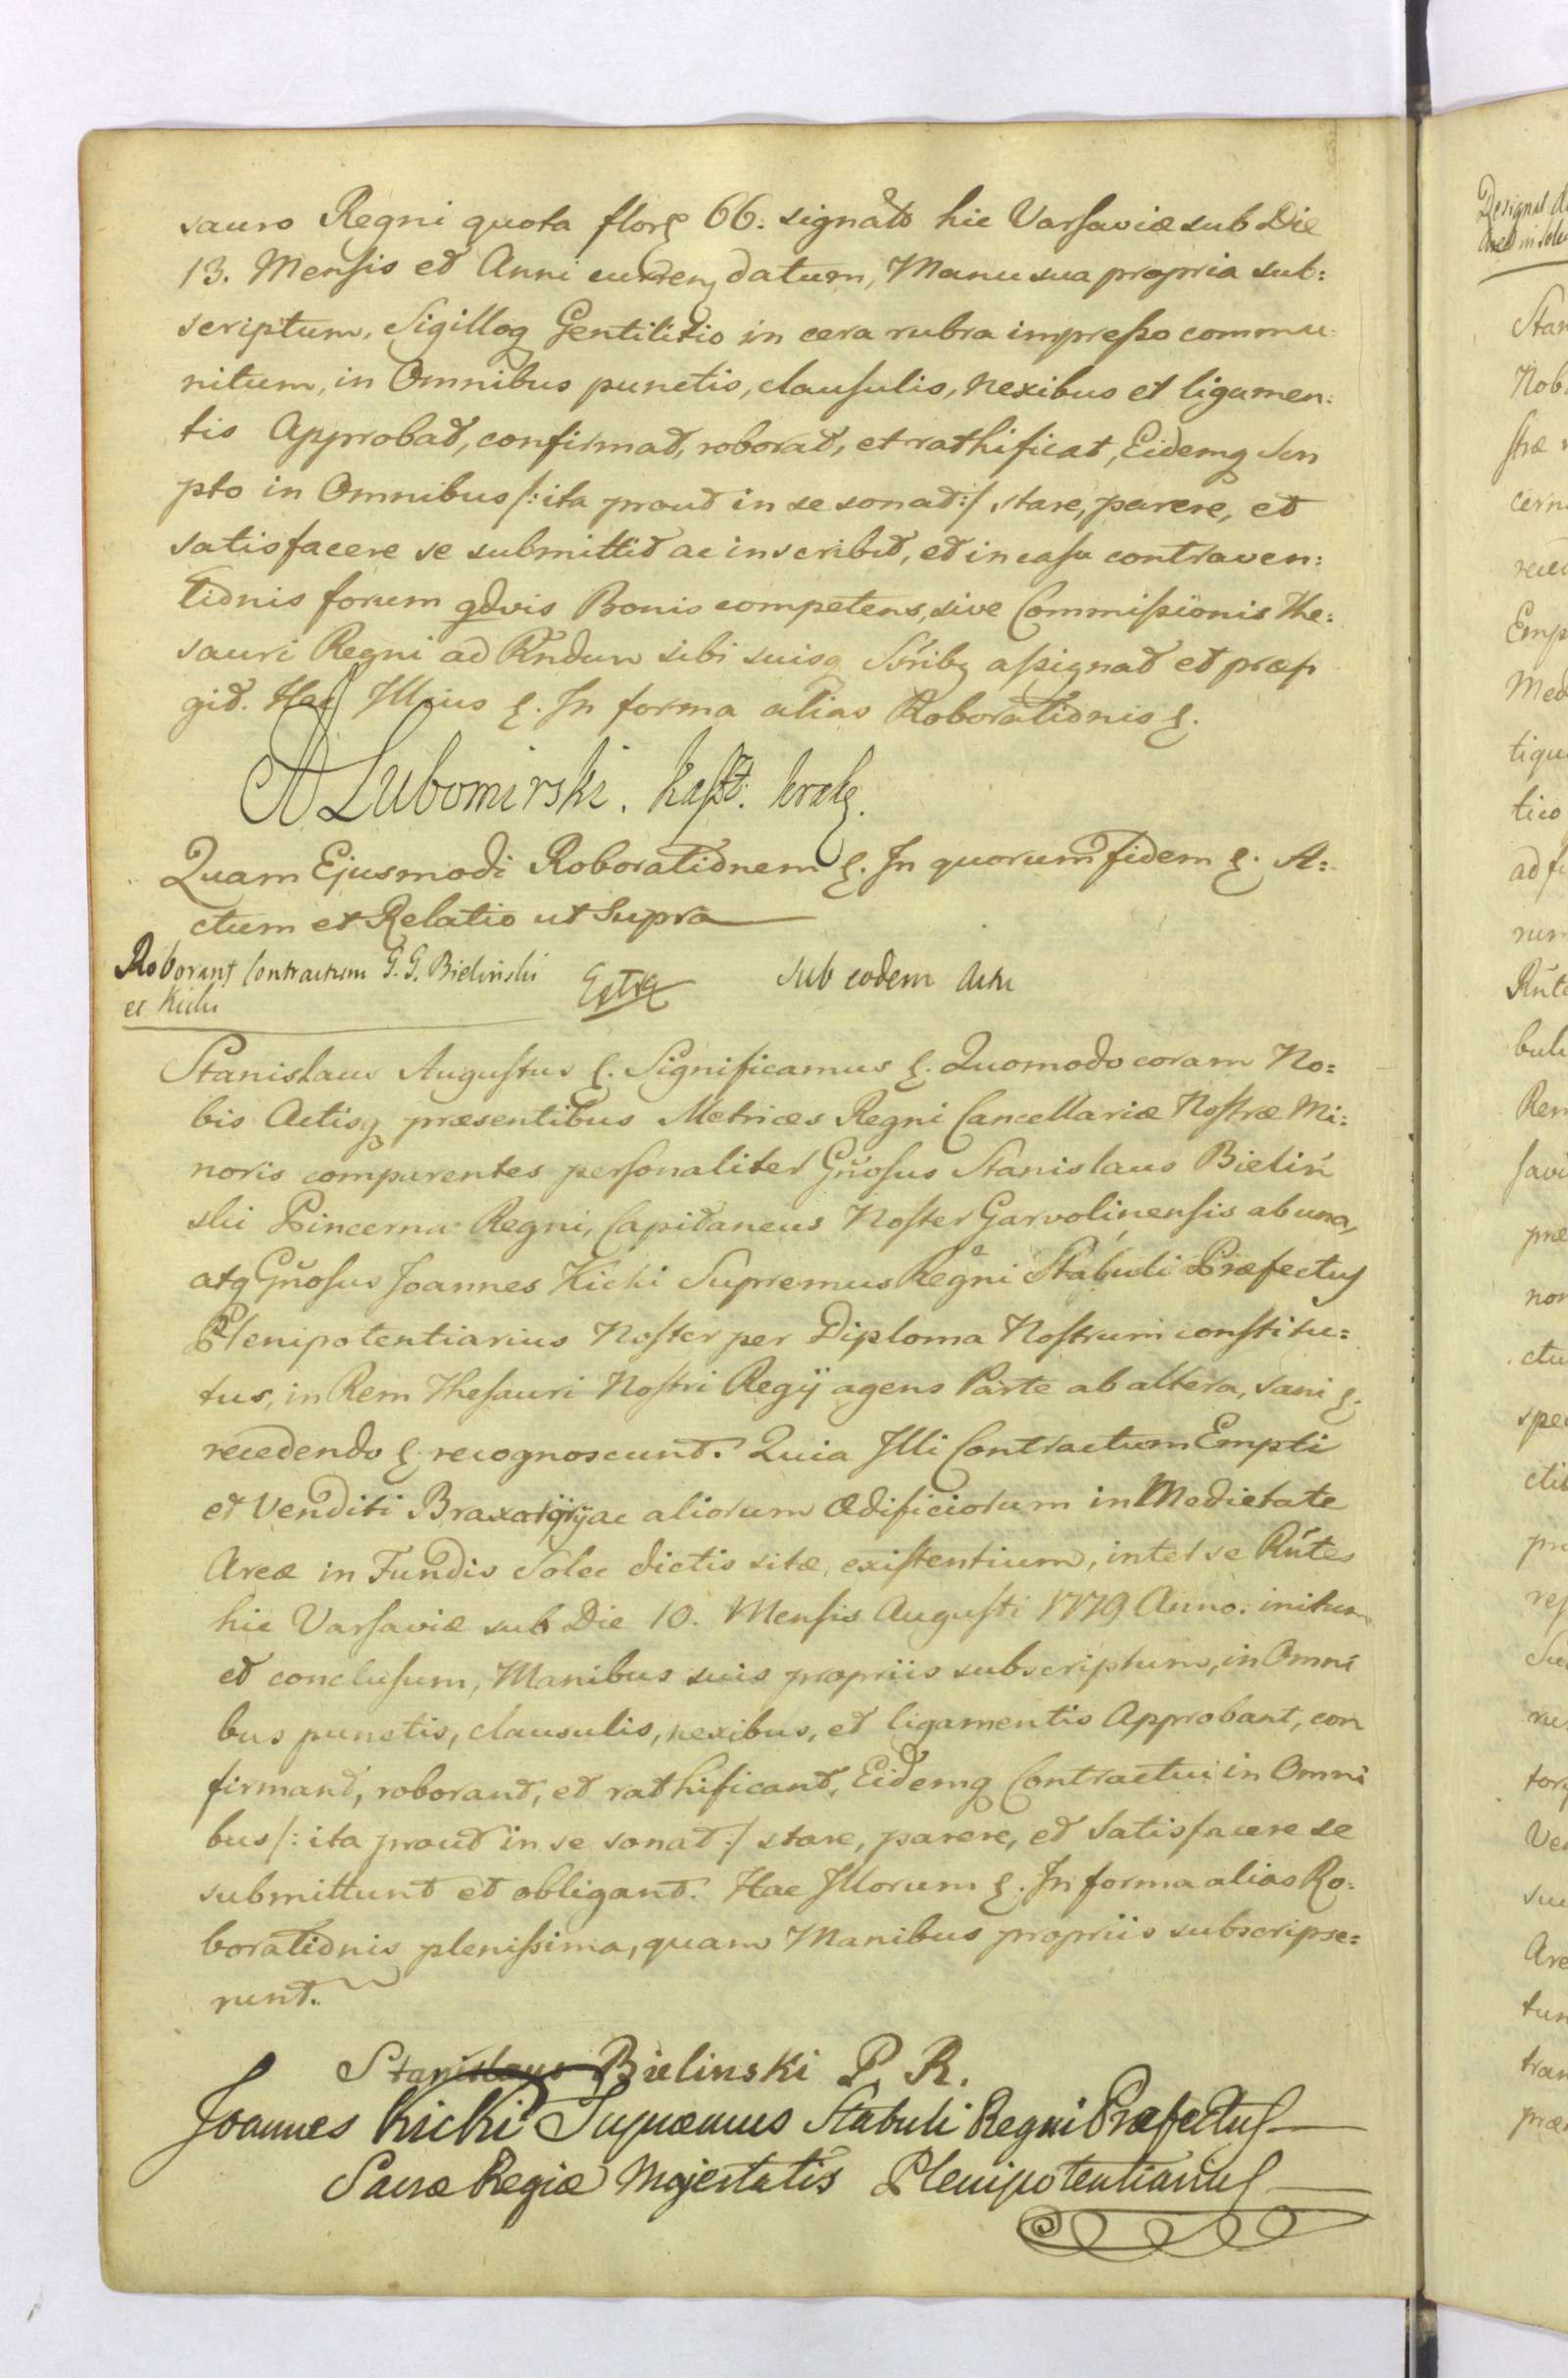 sauro Regni quota flor 66. signato hic Varsaviæ sub Die
13. Mensis et Anni curren datum, Manu sua propria sub:
scriptum, Sigilloq Gentilitio in cera rubra impresso commu
nitum, in Omnibus punctis, clausulis, nexibus et ligamen:
tis Approbat, confirmat, roborat, et rathificat, Eidemq Scri
pto in Omnibus /: ita prout in se sonat :/ stare, parere, et
satisfacere se submittit ac inscribit, et in casu contraven:
tionis forum qdvis Bonis competens, sive Commissionis The:
sauri Regni ad Rndun sibi suisq Sŕribq assignat et præfi
git. Hac Illius ꝛ. In forma alias Roborationis ꝛ.
A Lubomirski. Kaszt. krak.
Quam Ejusmodi Roborationem ꝛ. In quorum fidem ꝛ. A:
ctum et Relatio ut Supra
Roborant Contractum G. G. Bielinski
et Kicki
sub eodem Actu
Stanislaus Augustus ꝛ. Significamus ꝛ. Quomodo coram No:
bis Actisq præsentibus Metrices Regni Cancellariæ Nostræ Mi:
noris comparentes personaliter Gnosus Stanislaus Bieliń
ski Pincerna Regni, Capitaneus Noster Garvolinensis ab una,
atq Gnosus Joannes Kicki Supremus Regni Stabuli Præfectus
Plenipotentiarius Noster per Diploma Nostrum constitu:
tus, in Rem Thesauri Nostri Regij agens Parte ab altera, sani ꝛ.
recedendo ꝛ recognoscunt. Quia Illi Contractum Empti
et Venditi Braxatorij ac aliorum Ædificiorum in Medietate
Areæ in Fundis Solec dictis sitæ, existentium, inter se Rńtes
hic Varsaviæ sub Die 10. Mensis Augusti 1779 Anno: initum
et conclusum, Manibus suis propriis subscriptum, in Omni
bus punctis, clausulis, nexibus, et ligamentis Approbant, con
firmant, roborant, et rathificant, Eidemq Contractui in Omni
bus /: ita prout in se sonat :/ stare, parere, et satisfacere se
submittunt et obligant. Hac Illorum ꝛ. In forma alias Ro:
borationis plenissima, quam Manibus propriis subscripse:
runt.
Stanislaus Bielinski P. R.
Joannes Kicki Supræmus Stabuli Regni Præfectus
Sacræ Regiæ Majestatis Plenipotentiarius